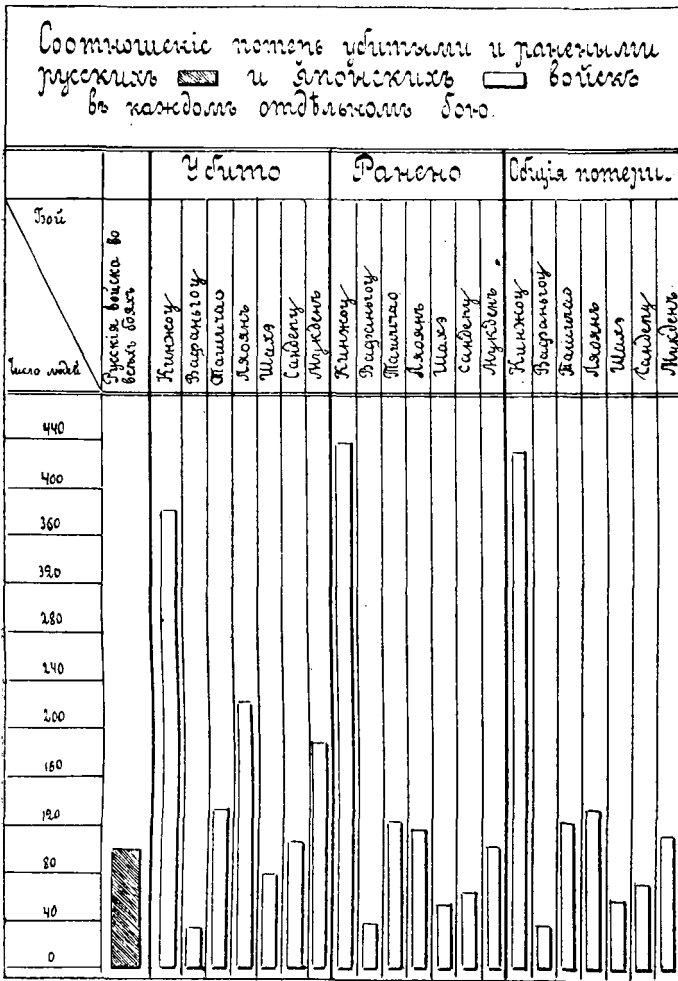 Соотношеніе потерь убитыми и ранеными
русскихъ и Японскихъ войскъ
въ каждомъ отдѣльномъ бою.
Убито Ранено Общія потери.
Бой
Число людей
Русскія войска во
всѣхъ бояхъ
Кинжоу
Вафаньгоу
Ташичао
Ляоянъ
Шахэ
Сандепу
Мукденъ
Кинжоу
Вафаньгоу
Ташичао
Ляоянъ
Шахэ
Сандепу
Мукденъ
Кинжоу
Вафаньгоу
Ташичао
Ляоянъ
Шахэ
Сандепу
Мукденъ
440
400
360
320
280
240
200
160
120
80
40
0